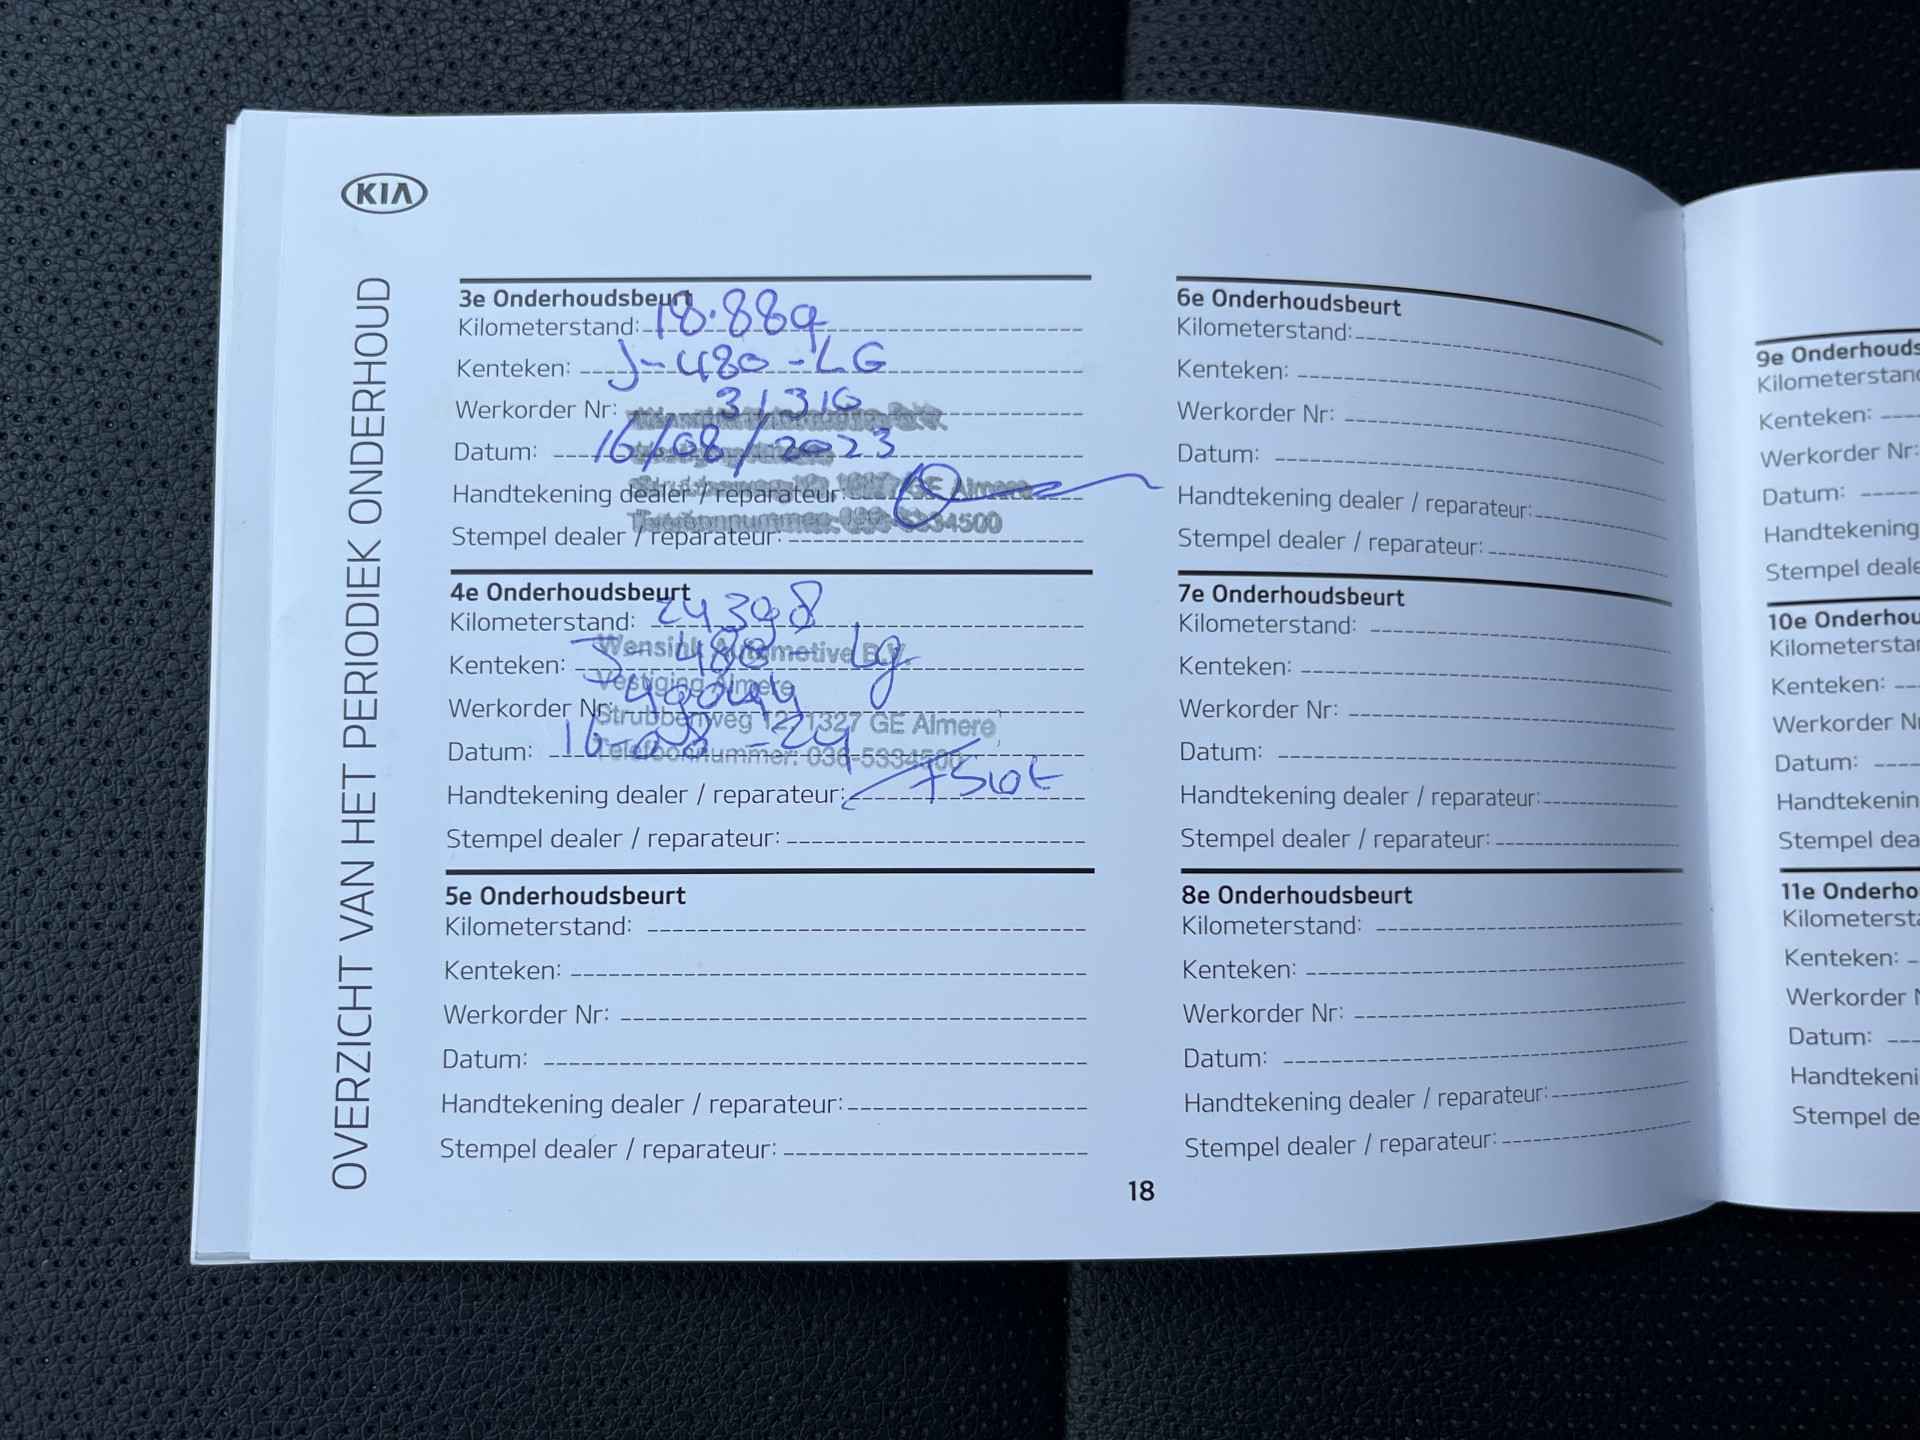 KIA
OVERZICHT VAN HET PERIODIEK ONDERHOUD
3e Onderhoudsbeurt
Kilometerstand: 18.889
Kenteken: J-480-LG
Werkorder Nr: 31310
Datum: 16/08/2023
Handtekening dealer / reparateur:
Stempel dealer / reparateur:
GE Almere
Telefoonnummer: 036-5334500
4e Onderhoudsbeurt
Kilometerstand: 24398
Kenteken: J-480-Lg
Werkorder Nr:
Datum: 16-08-24
Handtekening dealer / reparateur:
Stempel dealer / reparateur:
Wensink Automotive B.V.
Vestiging Almere
Strubbenweg 12, 1327 GE Almere
Telefoonnummer: 036-5334500
5e Onderhoudsbeurt
Kilometerstand:
Kenteken:
Werkorder Nr:
Datum:
Handtekening dealer / reparateur:
Stempel dealer / reparateur:
6e Onderhoudsbeurt
Kilometerstand:
Kenteken:
Werkorder Nr:
Datum:
Handtekening dealer / reparateur:
Stempel dealer / reparateur:
7e Onderhoudsbeurt
Kilometerstand:
Kenteken:
Werkorder Nr:
Datum:
Handtekening dealer / reparateur:
Stempel dealer / reparateur:
8e Onderhoudsbeurt
Kilometerstand:
Kenteken:
Werkorder Nr:
Datum:
Handtekening dealer / reparateur:
Stempel dealer / reparateur:
18
9e Onderhouds
Kilometerstand
Kenteken:
Werkorder Nr:
Datum:
Handtekening
Stempel deale
10e Onderhou
Kilometerstar
Kenteken:
Werkorder N
Datum:
Handtekenin
Stempel dea
11e Onderho
Kilometerst
Kenteken:
Werkorder N
Datum:
Handtekeni
Stempel de